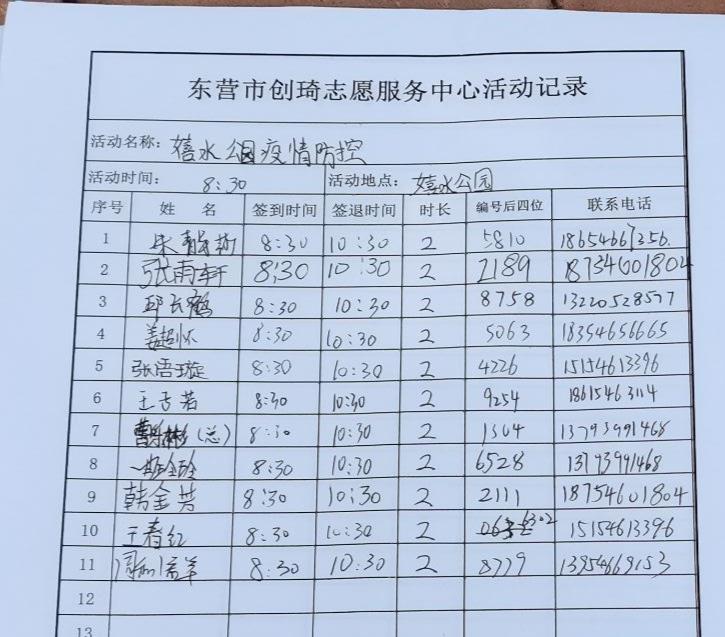 东营市创琦志愿服务中心活动记录
活动名称： 嬉水公园疫情防控
活动时间： 8:30 活动地点： 嬉水公园
序号 姓 名 签到时间 签退时间 时长 编号后四位 联系电话
1 8:30 10:30 2 5810
2 张雨轩 8:30 10:30 2 2189 18734601804
3 邱长鹤 8:30 10:30 2 8758 13220528577
4 姜超怀 8:30 10:30 2 5063 18354656665
5 张语璇 8:30 10:30 2 4226 15154613396
6 王舌若 8:30 10:30 2 9254 18615463114
7 (总) 8:30 10:30 2 1304 13793991468
8 8:30 10:30 2 6528 13793991468
9 韩金芳 8:30 10:30 2 2111 18754601804
10 王春红 8:30 10:30 2 6302 15154613396
11 8:30 10:30 2 8779 13954669153
12
13